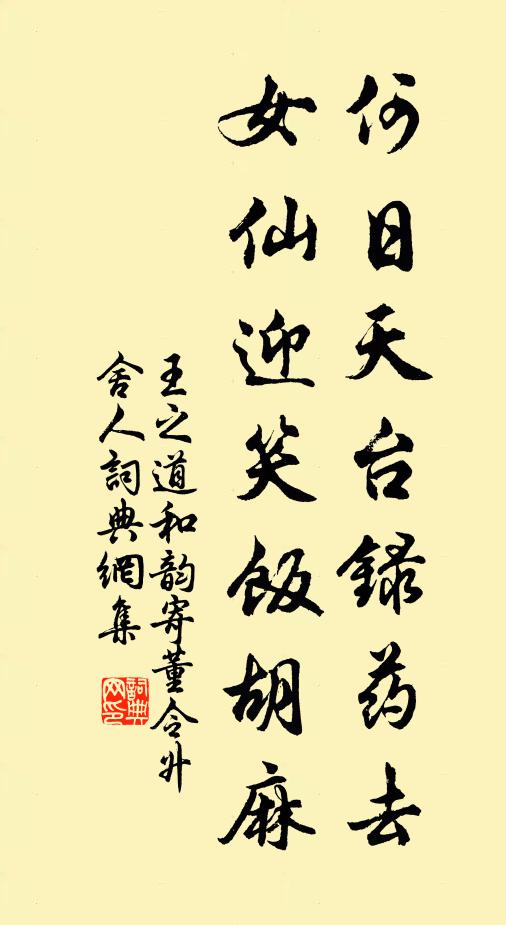 何日天台録药去
女仙迎笑饭胡麻
王之道和韵寄董令升
舍人詞典網集
詞典
网印